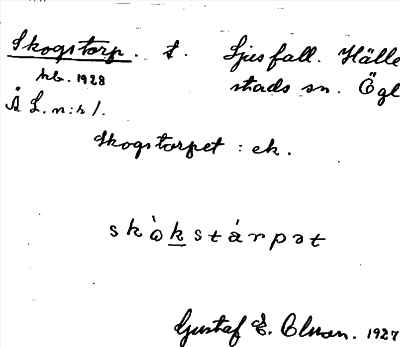 Skogstorp. t. Ljusfall. Hälle
hb. 1928 stads sn. Ögl
Å L. n:r 1.
Skogstorpet : ek.
skòkstárpət
Gustaf E. Olsson. 1927